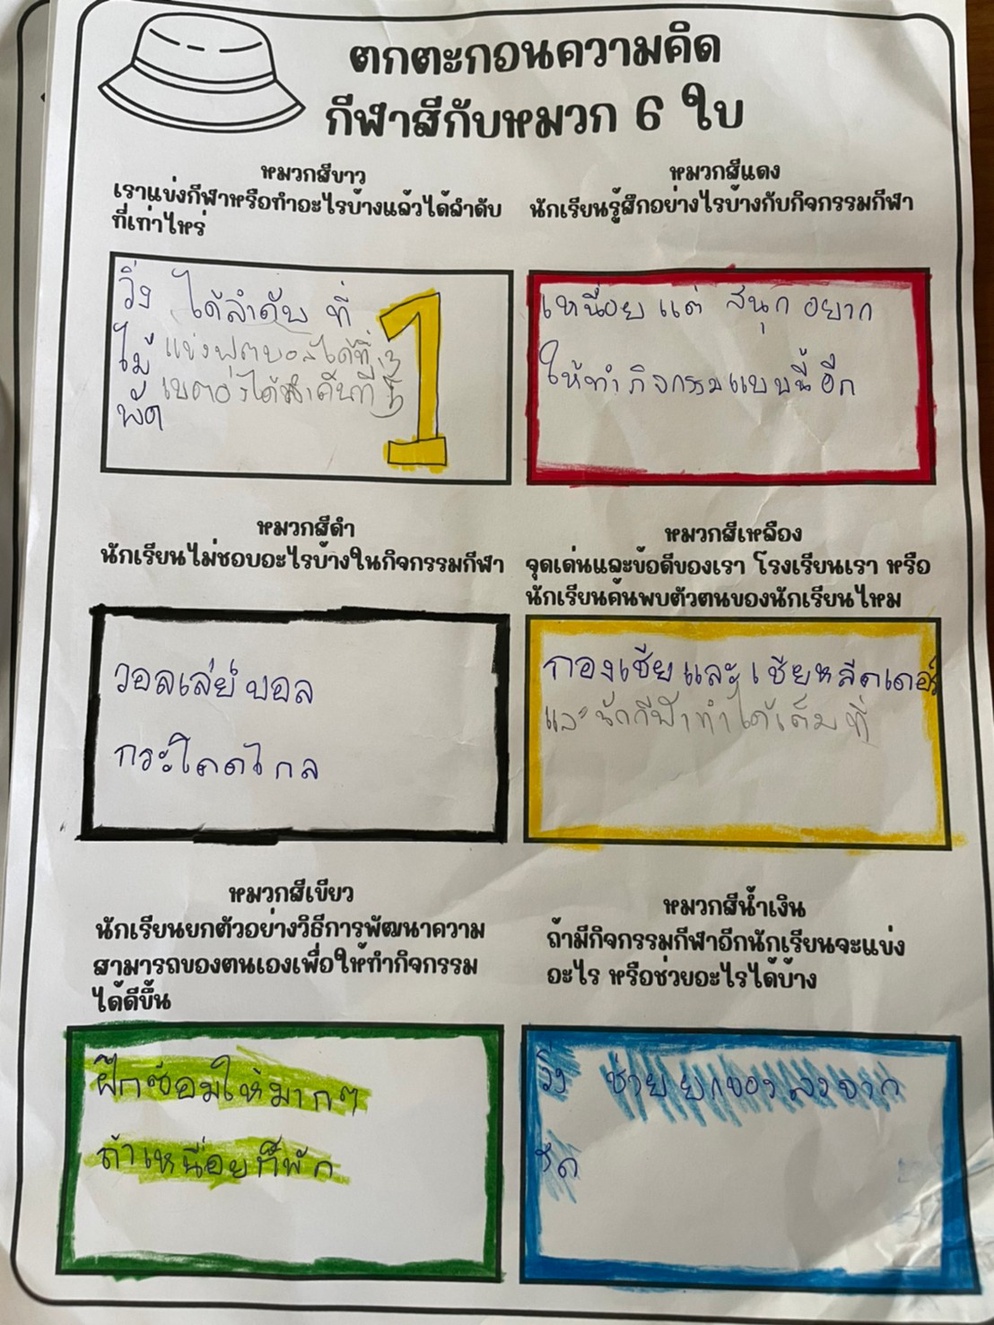 ตกตะกอนความคิด
กีฬาสีกับหมวก 6 ใบ
หมวกสีขาว
เราแข่งกีฬาหรือทำอะไรบ้างแล้วได้ลำดับ
ที่เท่าไหร่
วิ่ง ได้ลำดับ ที่ 1
ไม้ แข่งฟุตบอลได้ที่ 3
พัด
หมวกสีแดง
นักเรียนรู้สึกอย่างไรบ้างกับกิจกรรมกีฬา
เหนื่อย แต่ สนุก อยาก
ให้ทำกิจกรรมแบบนี้อีก
หมวกสีดำ
นักเรียนไม่ชอบอะไรบ้างในกิจกรรมกีฬา
วอลเล่ย์บอล
กระโดดไกล
หมวกสีเหลือง
จุดเด่นและข้อดีของเรา โรงเรียนเรา หรือ
นักเรียนค้นพบตัวตนของนักเรียนไหม
กองเชียและเชียหลีดเดอร์
และนักกีฬาทำได้เต็มที่
หมวกสีเขียว
นักเรียนยกตัวอย่างวิธีการพัฒนาความ
สามารถของตนเองเพื่อให้ทำกิจกรรม
ได้ดีขึ้น
ฝึกซ้อมให้มากๆ
ถ้าเหนื่อยก็พัก
หมวกสีน้ำเงิน
ถ้ามีกิจกรรมกีฬาอีกนักเรียนจะแข่ง
อะไร หรือช่วยอะไรได้บ้าง
วิ่ง ช่วยยกของลงจาก
รถ